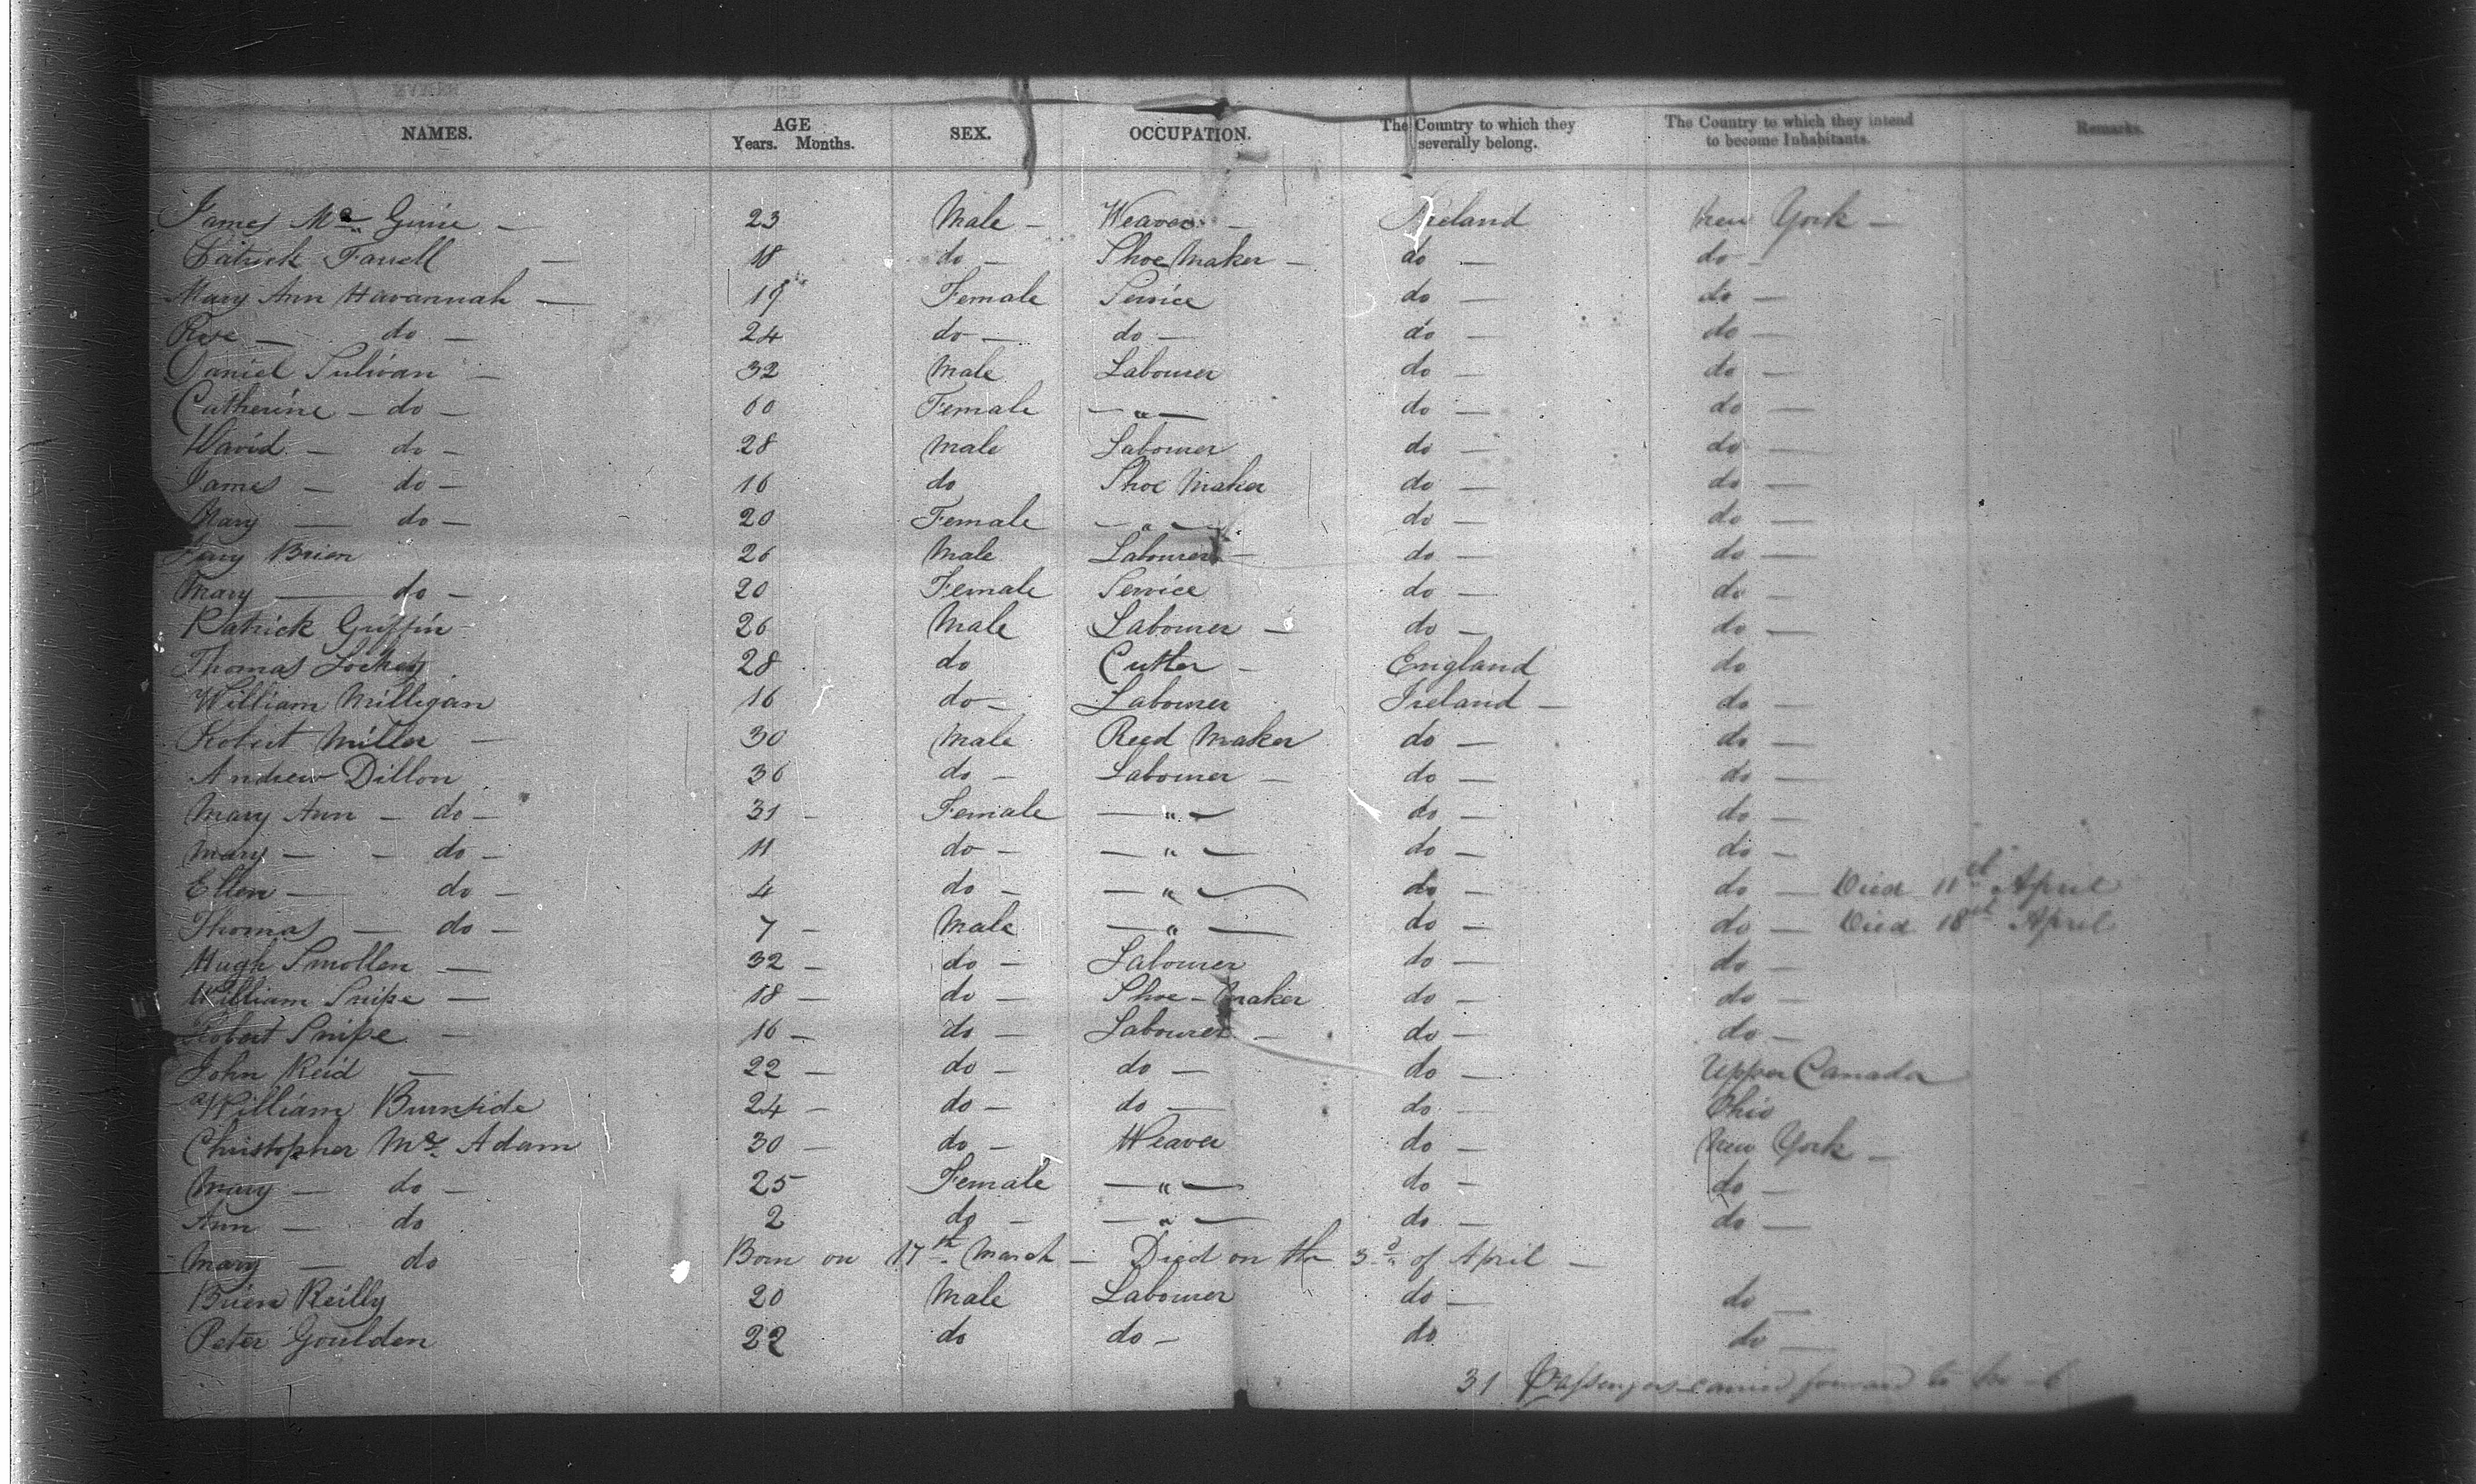 NAMES. AGE Years. Months. SEX. OCCUPATION. The Country to which they severally belong. The Country to which they intend to become Inhabitants. Remarks.
James Mc Guire — 23 Male — Weaver — Ireland New York —
Patrick Farrell — 18 do — Shoe Maker — do — do —
Mary Ann Havannah — 19 Female Service do — do —
Rose — do — 24 do — do — do — do —
Daniel Sulivan — 32 Male Labourer do — do —
Catherine — do — 60 Female — " — do — do —
David — do — 28 Male Labourer do — do —
James — do — 16 do Shoe Maker do — do —
Mary — do — 20 Female — " — do — do —
Brien 26 Male Labourer — do — do —
Mary — do — 20 Female Service do — do —
Patrick Griffin 26 Male Labourer — do — do —
Thomas Lockey 28 do Cutler — England do
William Milligan 16 do — Labourer Ireland — do —
Robert Miller — 30 Male Reed Maker do — do —
Andrew Dillon 36 do — Labourer — do — do —
Mary Ann — do — 31 — Female — " — do — do —
Mary — — do — 11 do — — " — do — do —
Ellen — do — 4 do — — " — do — do — Died 11th April
Thomas — do — 7 — Male — " — do — do — Died 18th April
Hugh Smollen — 32 — do — Labourer do — do —
William Snipe — 18 — do — Shoe - Maker do — do —
Robert Snipe — 16 — do — Labourer — do — do —
John Reid — 22 — do — do — do — Upper Canada
William Burnside 24 — do — do — do — Ohio
Christopher Mc Adam 30 — do — Weaver do — New York —
Mary — do — 25 — Female — " — do — do —
Ann — do 2 do — — " — do — do —
Mary — do Born on 17th March — Died on the 3d of April —
Brien Reilly 20 Male Labourer do — do —
Peter Goulden 22 do do — do do —
31 Passengers carried forward to